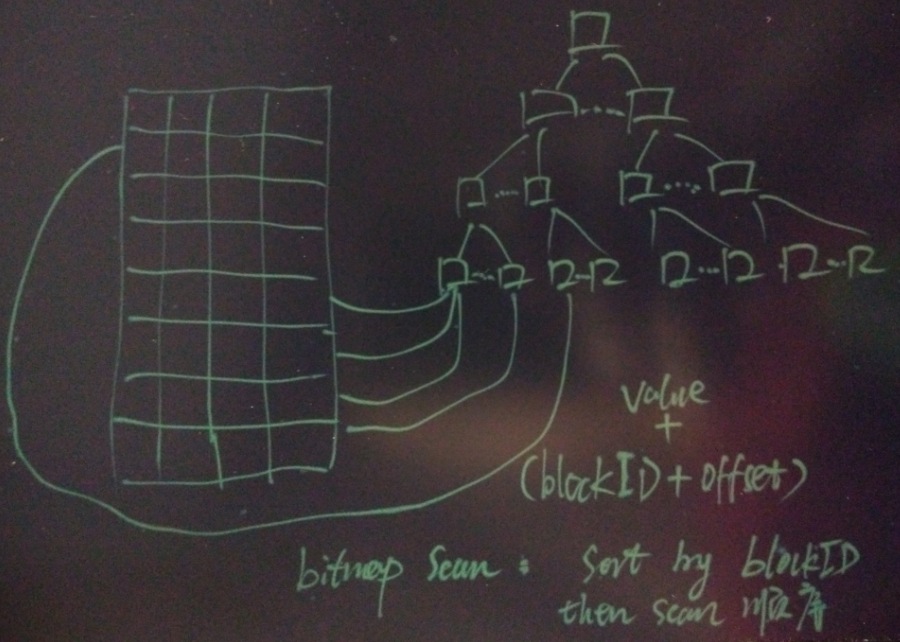 value
+
(blockID + offset)
bitmap Scan : Sort by blockID
then scan 顺序